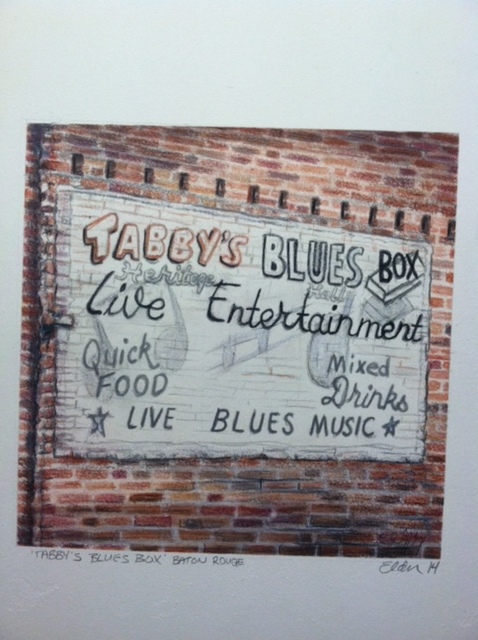 TABBY'S BLUES BOX
Heritage Hall
Live Entertainment
Quick Mixed
FOOD Drinks
☆ LIVE BLUES MUSIC ☆
'TABBY'S BLUES BOX' BATON ROUGE
Elden 14